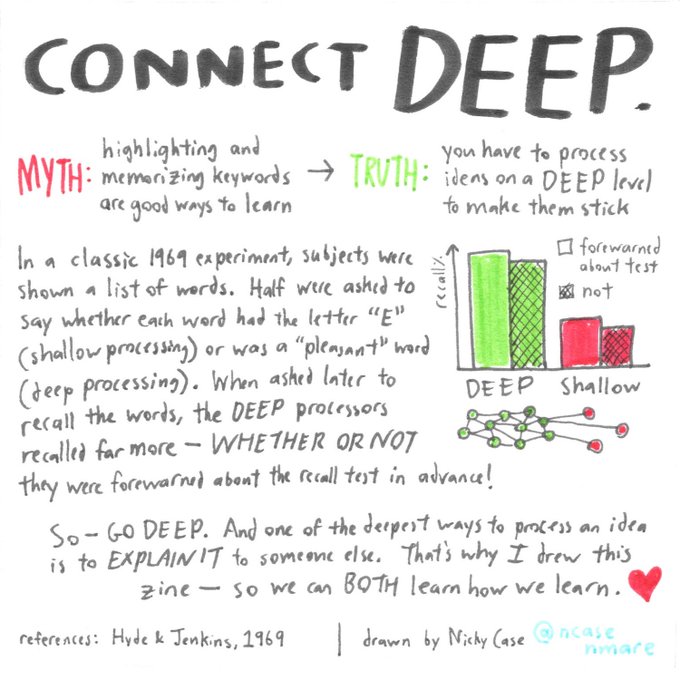 CONNECT DEEP.
MYTH: highlighting and memorizing keywords are good ways to learn
→ TRUTH: you have to process ideas on a DEEP level to make them stick
In a classic 1969 experiment, subjects were
shown a list of words. Half were asked to
say whether each word had the letter "E"
(shallow processing) or was a "pleasant" word
(deep processing). When asked later to
recall the words, the DEEP processors
recalled far more — WHETHER OR NOT
they were forewarned about the recall test in advance!
recall%
forewarned
about test
not
DEEP Shallow
So — GO DEEP. And one of the deepest ways to process an idea
is to EXPLAIN IT to someone else. That's why I drew this
zine — so we can BOTH learn how we learn. ♥
references: Hyde & Jenkins, 1969 | drawn by Nicky Case @ncase
nmare